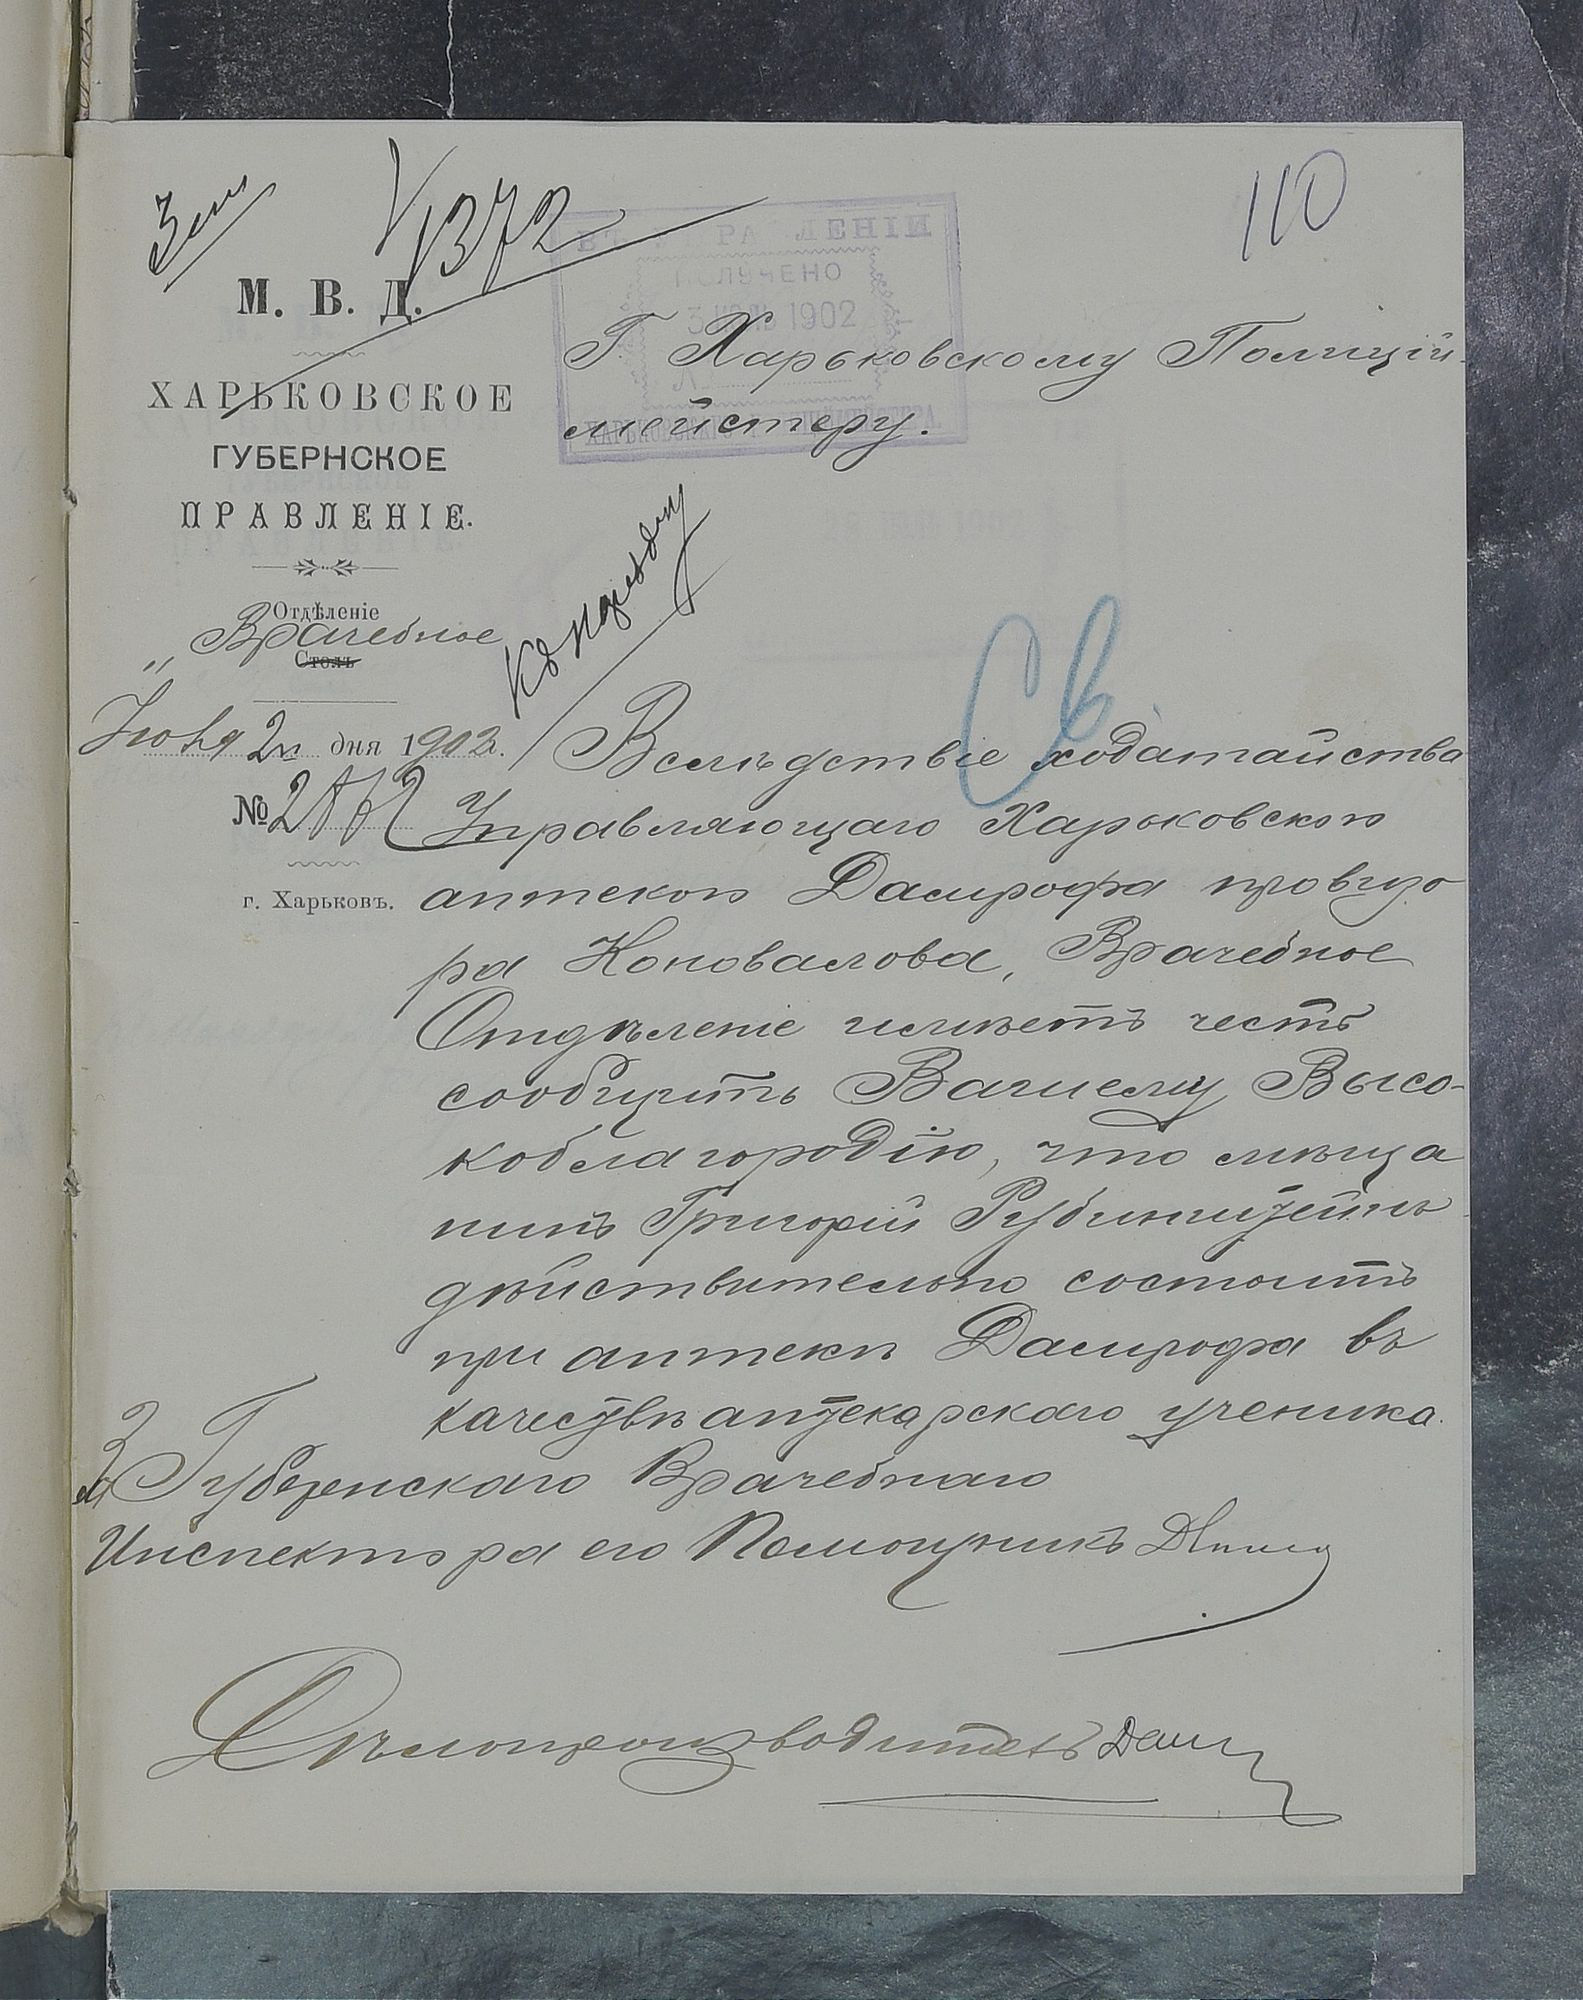 1372
110
М. В. Д.
ХАРЬКОВСКОЕ
ГУБЕРНСКОЕ
ПРАВЛЕНІЕ.
Отдѣленіе
Врачебное
Столъ
2 дня 1902 г.
№
г. Харьковъ.
ПОЛУЧЕНО
3 1902
Г. Харьковскому Полицій-
мейстеру.
Вслѣдствіе ходатайства
Управляющаго Харьковскою
аптекою провизо
ра Коновалова, Врачебное
Отдѣленіе имѣетъ честь
сообщить Вашему Высо-
коблагородію, что мѣща
нинъ Григорій Рубинштейнъ
дѣйствительно состоитъ
при аптекѣ въ
качествѣ аптекарскаго ученика.
Губернскаго Врачебнаго
Инспектора его Помощникъ
Дѣлопроизводитель